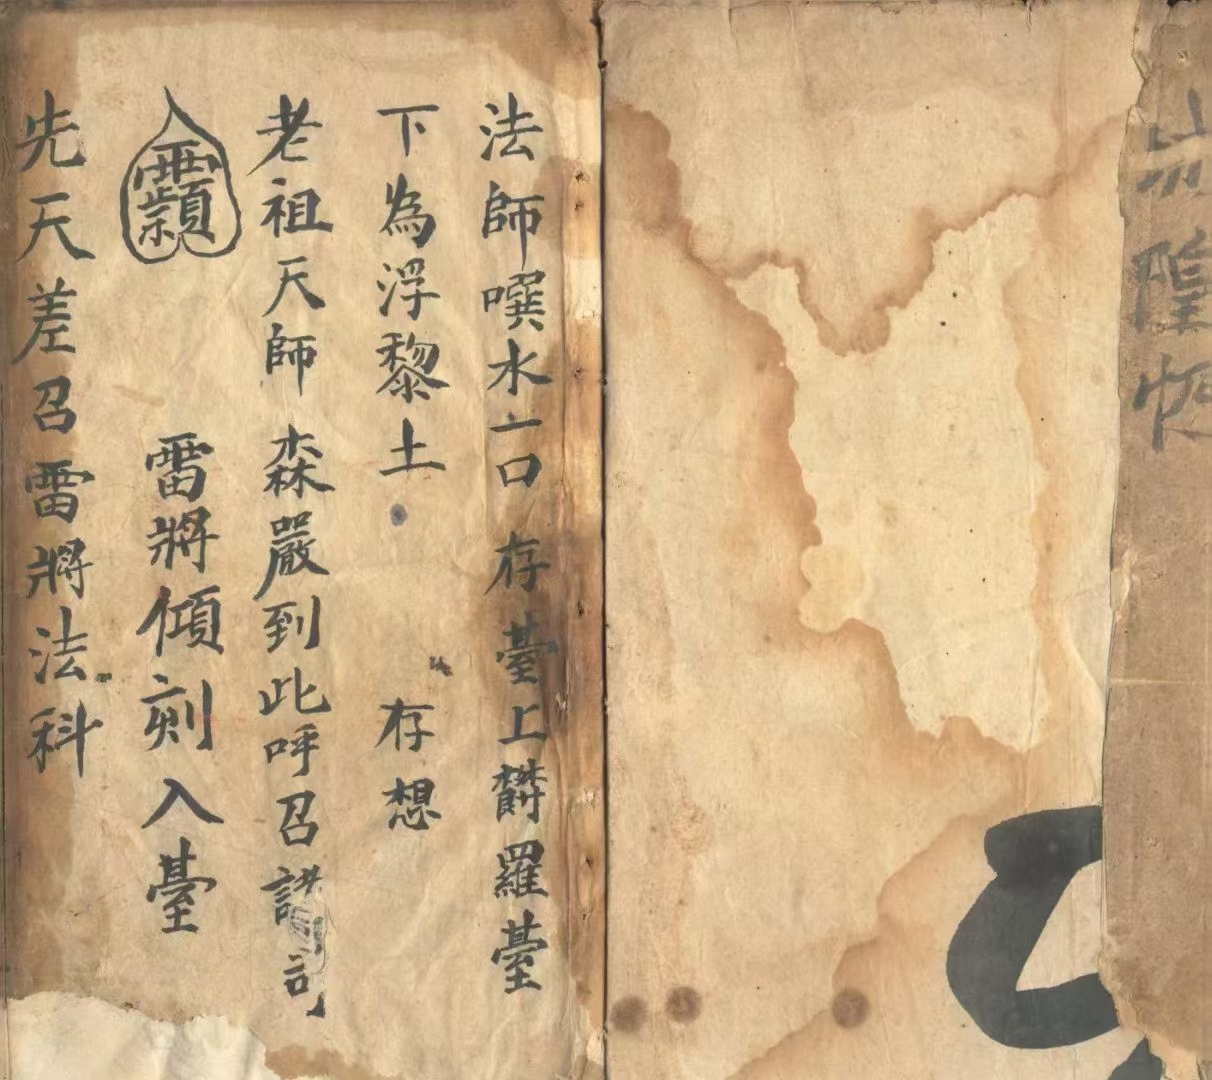 法師噀水一口存臺上欝羅臺
下為浮黎土 存想
老祖天師 森嚴到此呼召諸司
雷將傾刻入臺
先天差召雷將法科